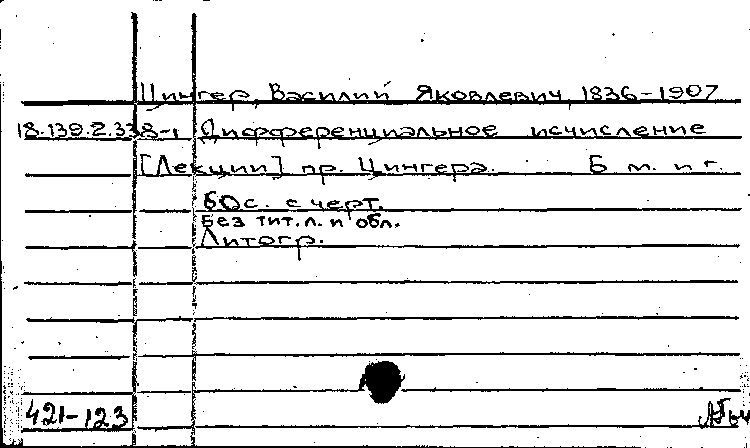 Цингер, Василий Яковлевич, 1836-1907
18.139.2.338-1 Дифференциальное исчисление
[Лекции] пр. Цингера. Б м. и г.
60с. с черт.
Без тит. л. и обл.
Литогр.
421-123